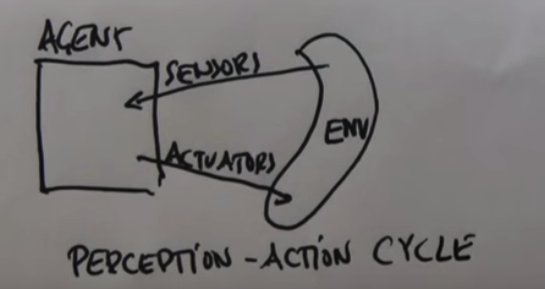 AGENT
SENSORS
ENV
ACTUATORS
PERCEPTION - ACTION CYCLE